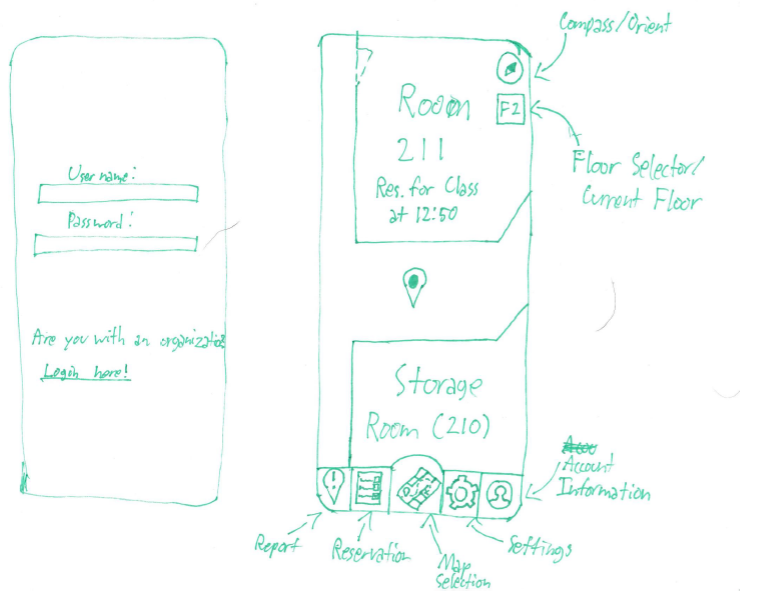 Username:
Password:
Are you with an organization
Login here!
Compass/Orient
Room
211
Res. for Class
at 12:50
F2
Floor Selector/
Current Floor
Storage
Room (210)
Account
Information
Report
Reservation
Map
Selection
Settings